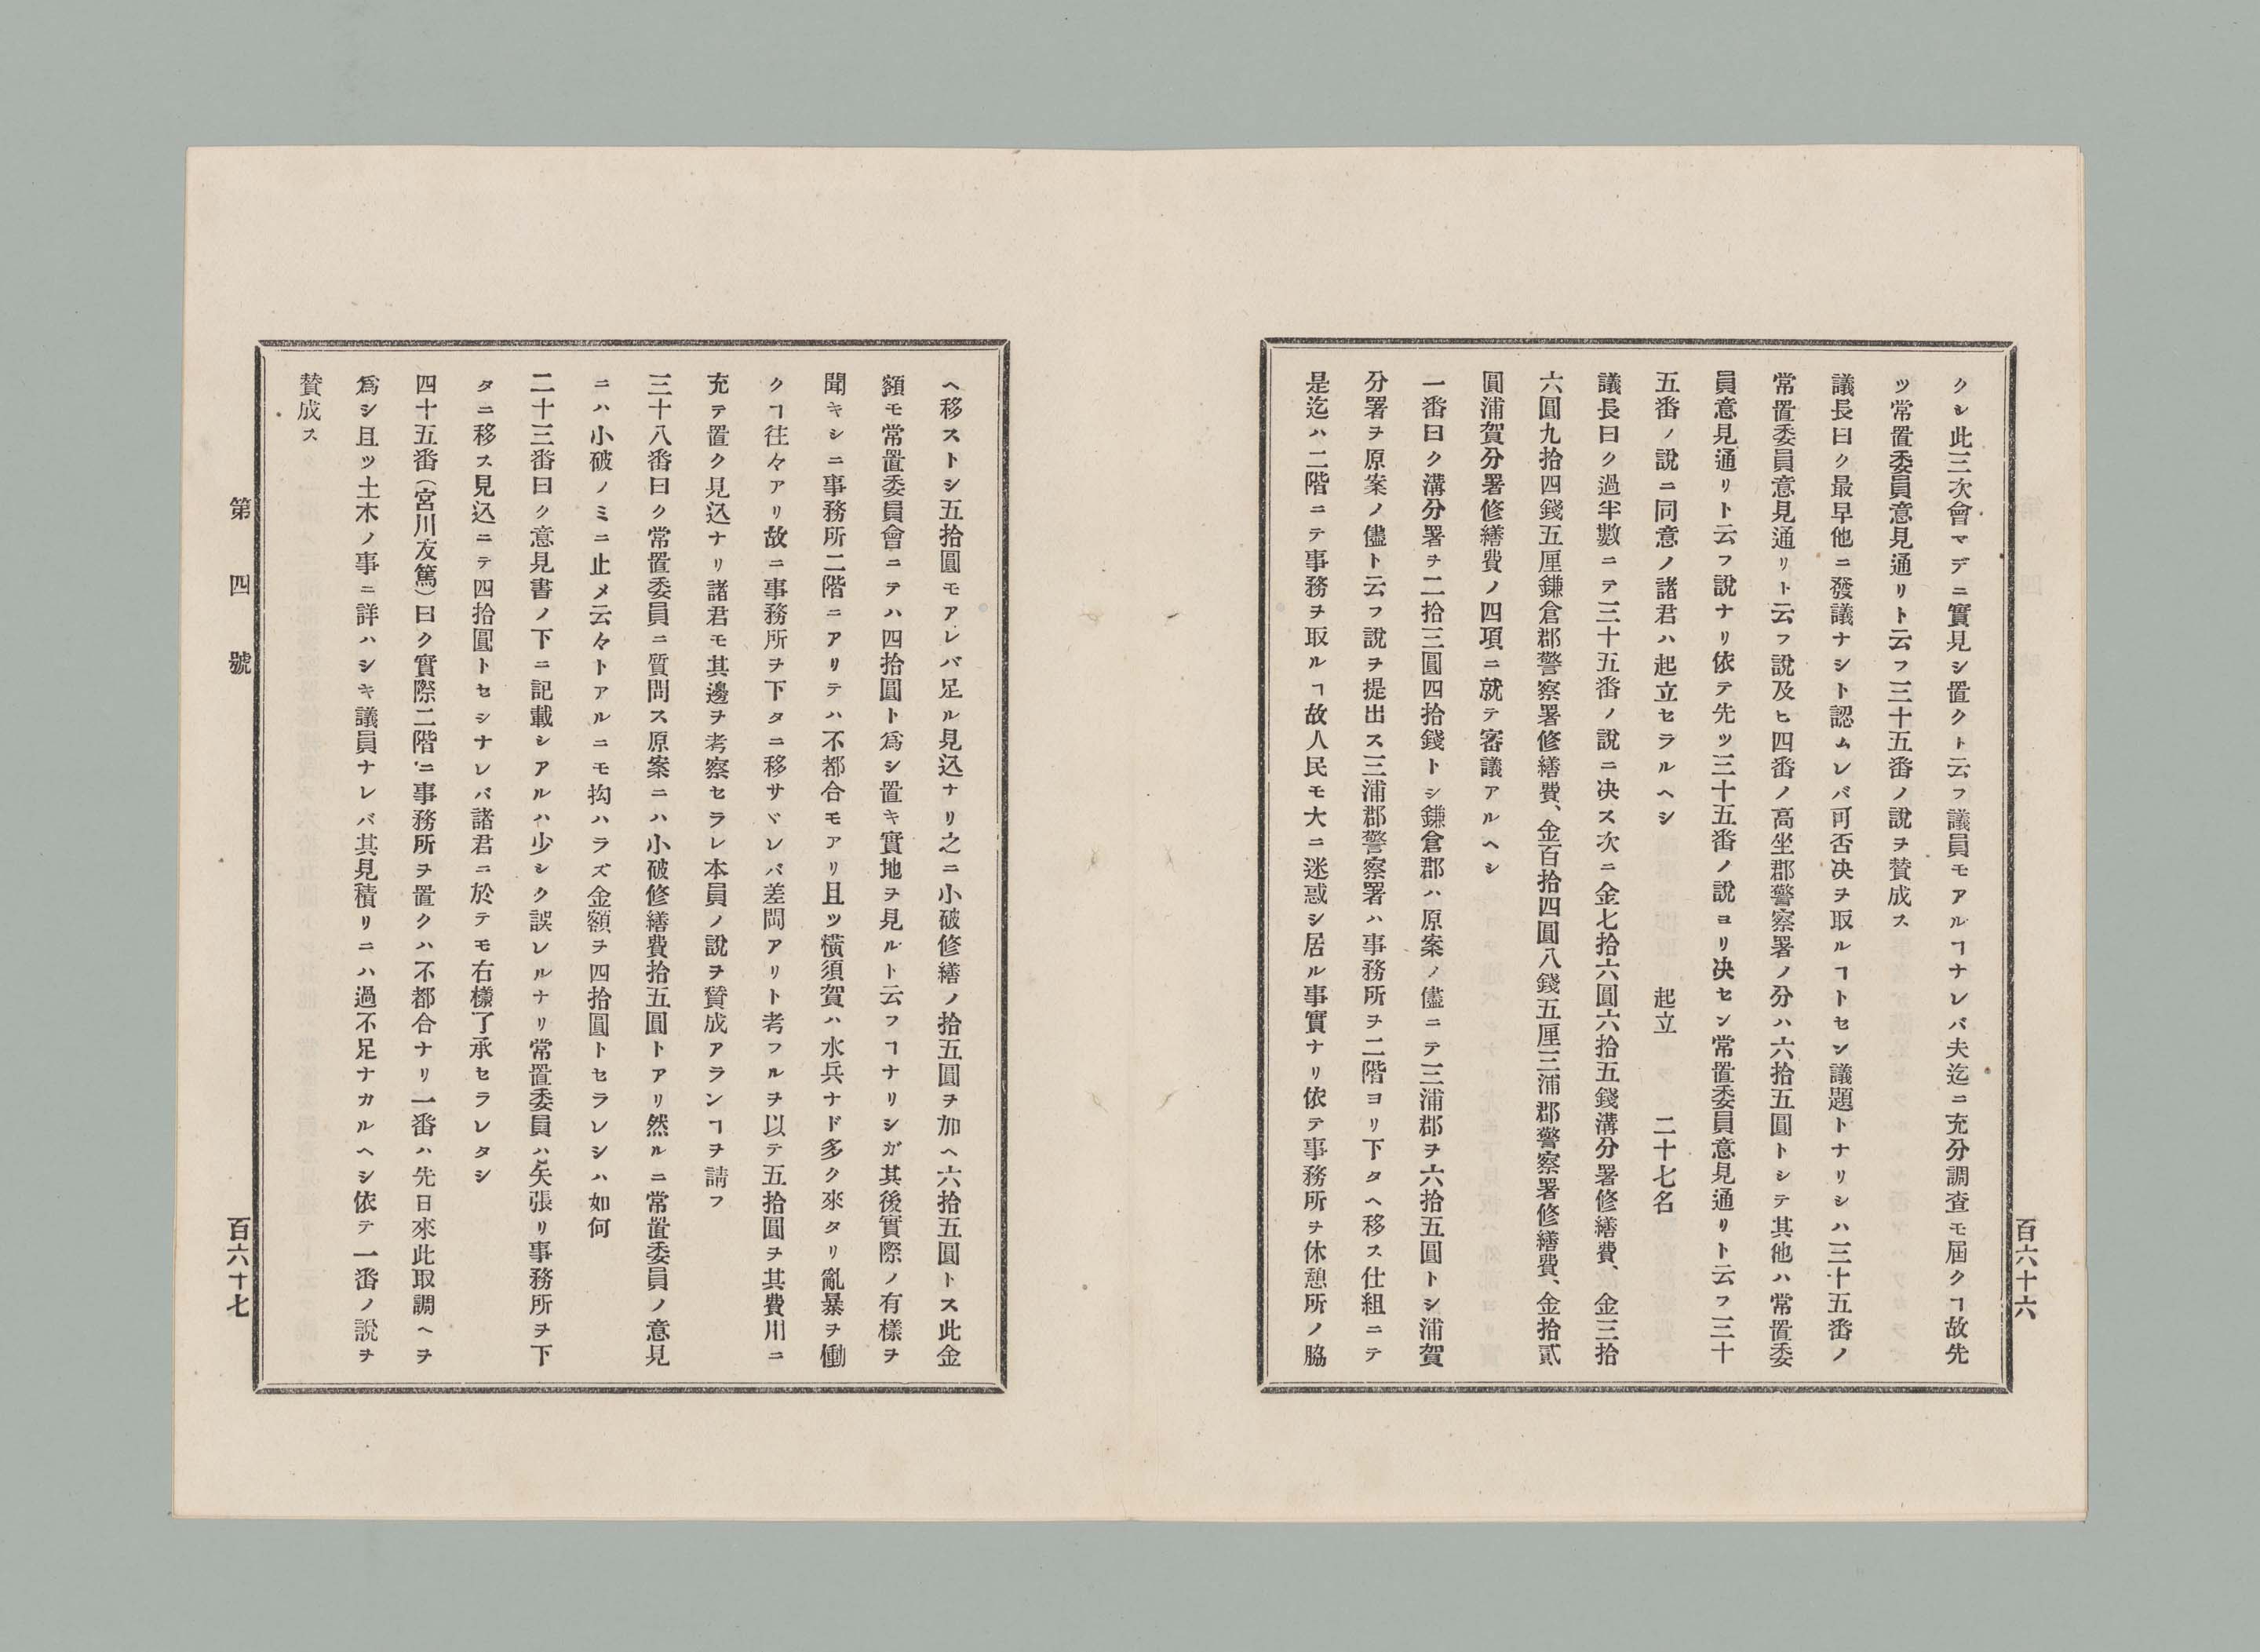 百六十六
クシ此三次會マデニ實見シ置クト云フ議員モアルヿナレバ夫迄ニ充分調査モ屆クヿ故先
ツ常置委員意見通リト云フ三十五番ノ說ヲ賛成ス
議長曰ク最早他ニ發議ナシト認ムレバ可否决ヲ取ルヿトセン議題トナリシハ三十五番ノ
常置委員意見通リト云フ說及ヒ四番ノ高坐郡警察署ノ分ハ六拾五圓トシテ其他ハ常置委
員意見通リト云フ說ナリ依テ先ツ三十五番ノ說ヨリ决セン常置委員意見通リト云フ三十
五番ノ說ニ同意ノ諸君ハ起立セラルヘシ　起立　二十七名
議長曰ク過半數ニテ三十五番ノ說ニ决ス次ニ金七拾六圓六拾五錢溝分署修繕費、金三拾
六圓九拾四錢五厘鎌倉郡警察署修繕費、金百拾四圓八錢五厘三浦郡警察署修繕費、金拾貳
圓浦賀分署修繕費ノ四項ニ就テ審議アルヘシ
一番曰ク溝分署ヲ二拾三圓四拾錢トシ鎌倉郡ハ原案ノ儘ニテ三浦郡ヲ六拾五圓トシ浦賀
分署ヲ原案ノ儘ト云フ說ヲ提出ス三浦郡警察署ハ事務所ヲ二階ヨリ下タヘ移ス仕組ニテ
是迄ハ二階ニテ事務ヲ取ルヿ故人民モ大ニ迷惑シ居ル事實ナリ依テ事務所ヲ休憩所ノ脇
ヘ移ストシ五拾圓モアレバ足ル見込ナリ之ニ小破修繕ノ拾五圓ヲ加ヘ六拾五圓トス此金
額モ常置委員會ニテハ四拾圓ト爲シ置キ實地ヲ見ルト云フヿナリシガ其後實際ノ有樣ヲ
聞キシニ事務所二階ニアリテハ不都合モアリ且ツ橫須賀ハ水兵ナド多ク來タリ亂暴ヲ働
クヿ往々アリ故ニ事務所ヲ下タニ移サヾレバ差閊アリト考フルヲ以テ五拾圓ヲ其費用ニ
充テ置ク見込ナリ諸君モ其邊ヲ考察セラレ本員ノ說ヲ賛成アランヿヲ請フ
三十八番曰ク常置委員ニ質問ス原案ニハ小破修繕費拾五圓トアリ然ルニ常置委員ノ意見
ニハ小破ノミニ止メ云々トアルニモ拘ハラズ金額ヲ四拾圓トセラレシハ如何
二十三番曰ク意見書ノ下ニ記載シアルハ少シク誤レルナリ常置委員ハ矢張リ事務所ヲ下
タニ移ス見込ニテ四拾圓トセシナレバ諸君ニ於テモ右樣了承セラレタシ
四十五番（宮川友篤）曰ク實際二階ニ事務所ヲ置クハ不都合ナリ一番ハ先日來此取調ヘヲ
爲シ且ツ土木ノ事ニ詳ハシキ議員ナレバ其見積リニハ過不足ナカルヘシ依テ一番ノ說ヲ
賛成ス
第四號
百六十七